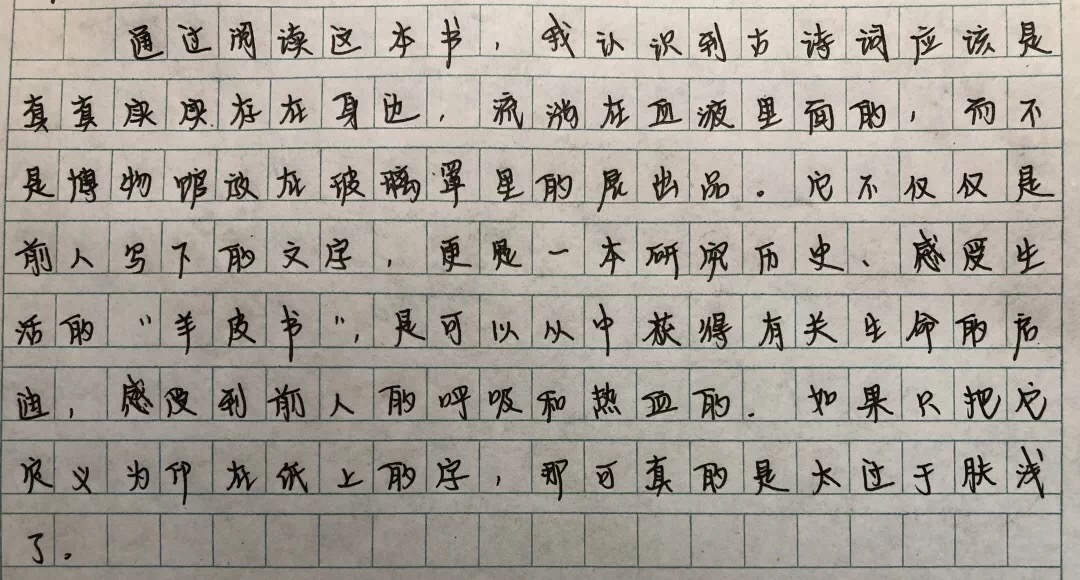 通过阅读这本书，我认识到古诗词应该是
真真实实存在身边，流淌在血液里面的，而不
是博物馆放在玻璃罩里的展出品。它不仅仅是
前人写下的文字，更是一本研究历史、感受生
活的“羊皮书”，是可以从中获得有关生命的启
迪，感受到前人的呼吸和热血的．如果只把它
定义为印在纸上的字，那可真的是太过于肤浅
了。